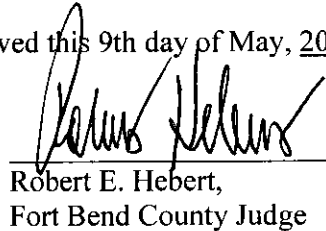 ved this 9th day of May, 20
Robert E. Hebert,
Fort Bend County Judge